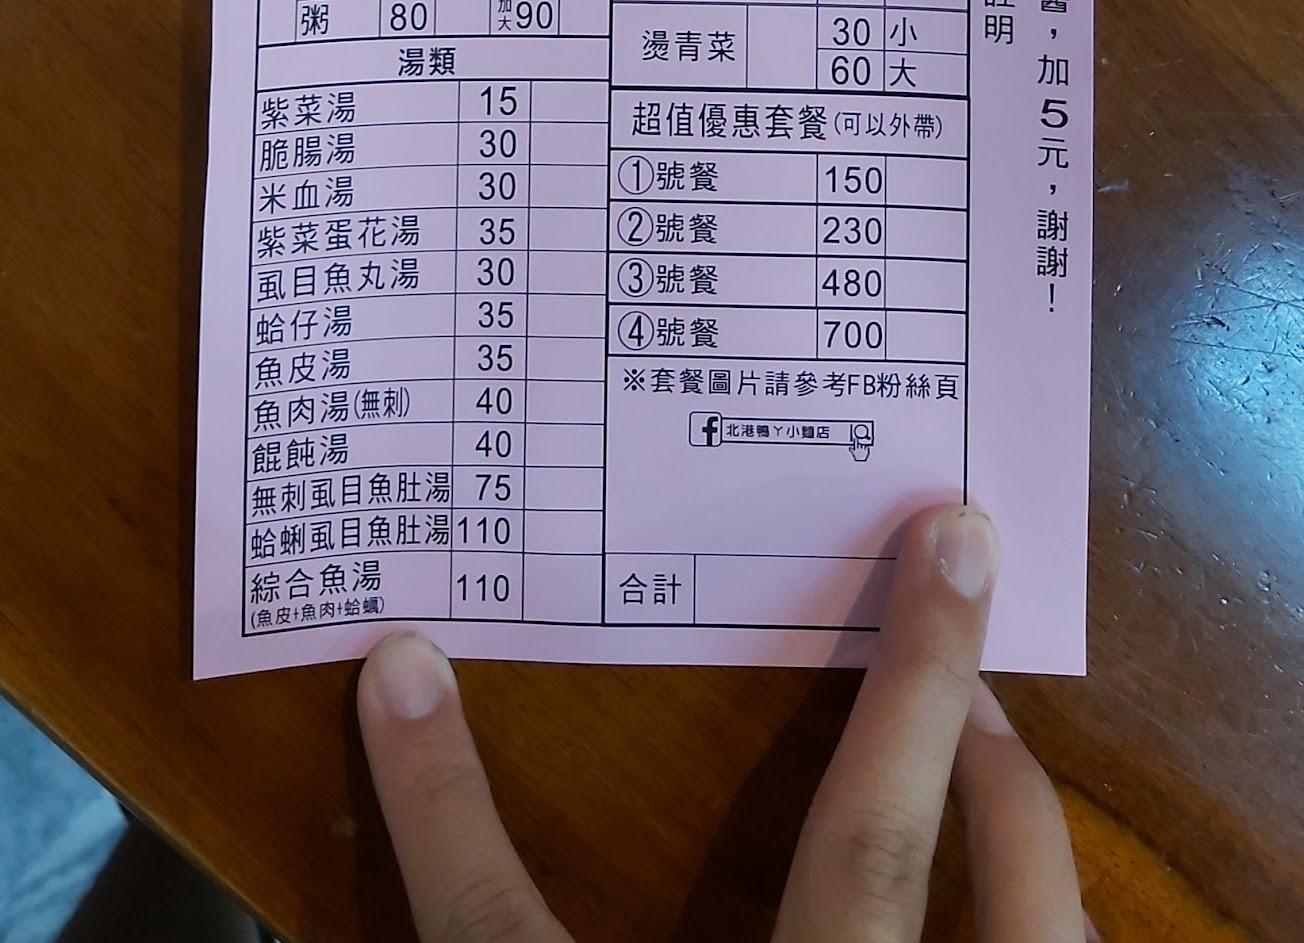 粥 80 加大 90
湯類
紫菜湯 15
脆腸湯 30
米血湯 30
紫菜蛋花湯 35
虱目魚丸湯 30
蛤仔湯 35
魚皮湯 35
魚肉湯(無刺) 40
餛飩湯 40
無刺虱目魚肚湯 75
蛤蜊虱目魚肚湯 110
綜合魚湯 110
(魚皮+魚肉+蛤蠣)
燙青菜 30 小
60 大
超值優惠套餐(可以外帶)
①號餐 150
②號餐 230
③號餐 480
④號餐 700
※套餐圖片請參考FB粉絲頁
f 北港鴨ㄚ小麵店
合計
醬，加5元，謝謝！
明